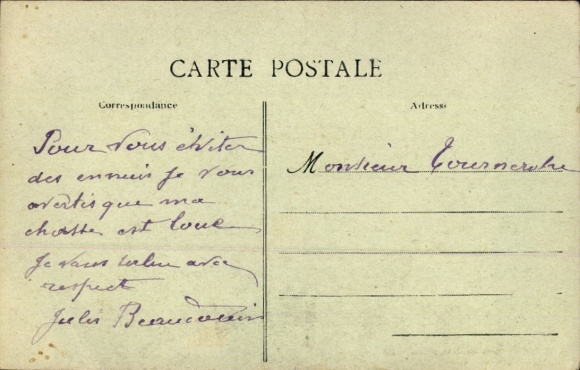 CARTE POSTALE
Correspondance
Adresse
Pour vous éviter
des ennuis je vous
avertis que ma
chasse est loué
Je vous salue avec
respect
Jules
Monsieur